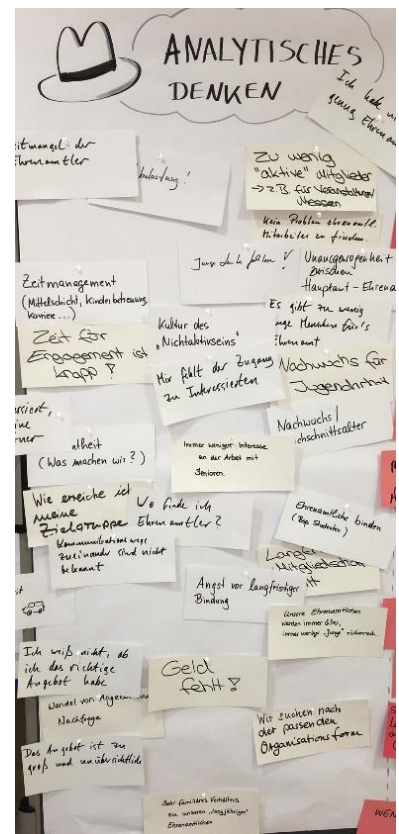 ANALYTISCHES
DENKEN
Ich hab
genug Ehrenam
itmangel der
Ehrenamtler
belastung!
Zu wenig
"aktive" Mitglieder
→ z.B. für Veranstaltungen/
Messen
Kein Problem ehrenamtl.
Mitarbeiter zu finden.
Junge Leute fehlen!
Unausgewogenheit
zwischen
Hauptamt - Ehrena
Zeitmanagement
(Mittelschicht, Kinderbetreuung,
Karriere...)
Es gibt zu wenig
nge Menschen für's
Ehrenamt
Kultur des
"Nichtaktivseins"
Zeit für
Engagement ist
knapp!
Mir fehlt der Zugang
zu Interessierten
Nachwuchs für
Jugendarbeit
Nachwuchs/
chschnittsalter
rsiert,
ine
rner
atheit
(Was machen wir?)
Immer weniger Interesse
an der Arbeit mit
Senioren.
Wie erreiche ich
meine
Zielgruppe
Wo finde ich
Ehrenamtler?
Ehrenamtliche binden
(Bsp. Studenten)
Kommunikationswege
zueinander sind nicht
bekannt
Langfr
Mitgliedschaft
Angst vor langfristiger
Bindung
Unsere Ehrenamtlichen
werden immer älter,
immer weniger "Junge" rücken nach
Ich weiß nicht, ob
ich das richtige
Angebot habe
Geld
fehlt!
Wandel von Angebot
Nachfrage
Wir suchen nach
der passenden
Organisationsform
Das Angebot ist zu
groß und unübersichtlich
Sehr familiäres Verhältnis
zu unseren "langjährigen"
Ehrenamtlichen
WEN